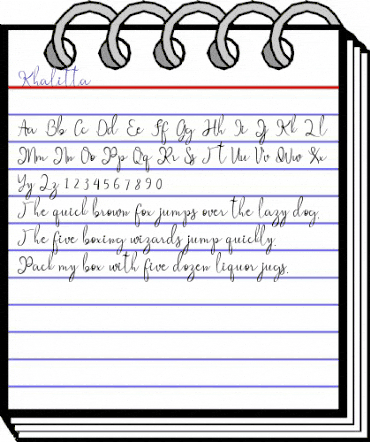 Khalitta
Aa Bb Cc Dd Ee Ff Gg Hh Ii Jj Kk Ll
Mm Nn Oo Pp Qq Rr Ss Tt Uu Vv Ww Xx
Yy Zz 1 2 3 4 5 6 7 8 9 0
The quick brown fox jumps over the lazy dog.
The five boxing wizards jump quickly.
Pack my box with five dozen liquor jugs.